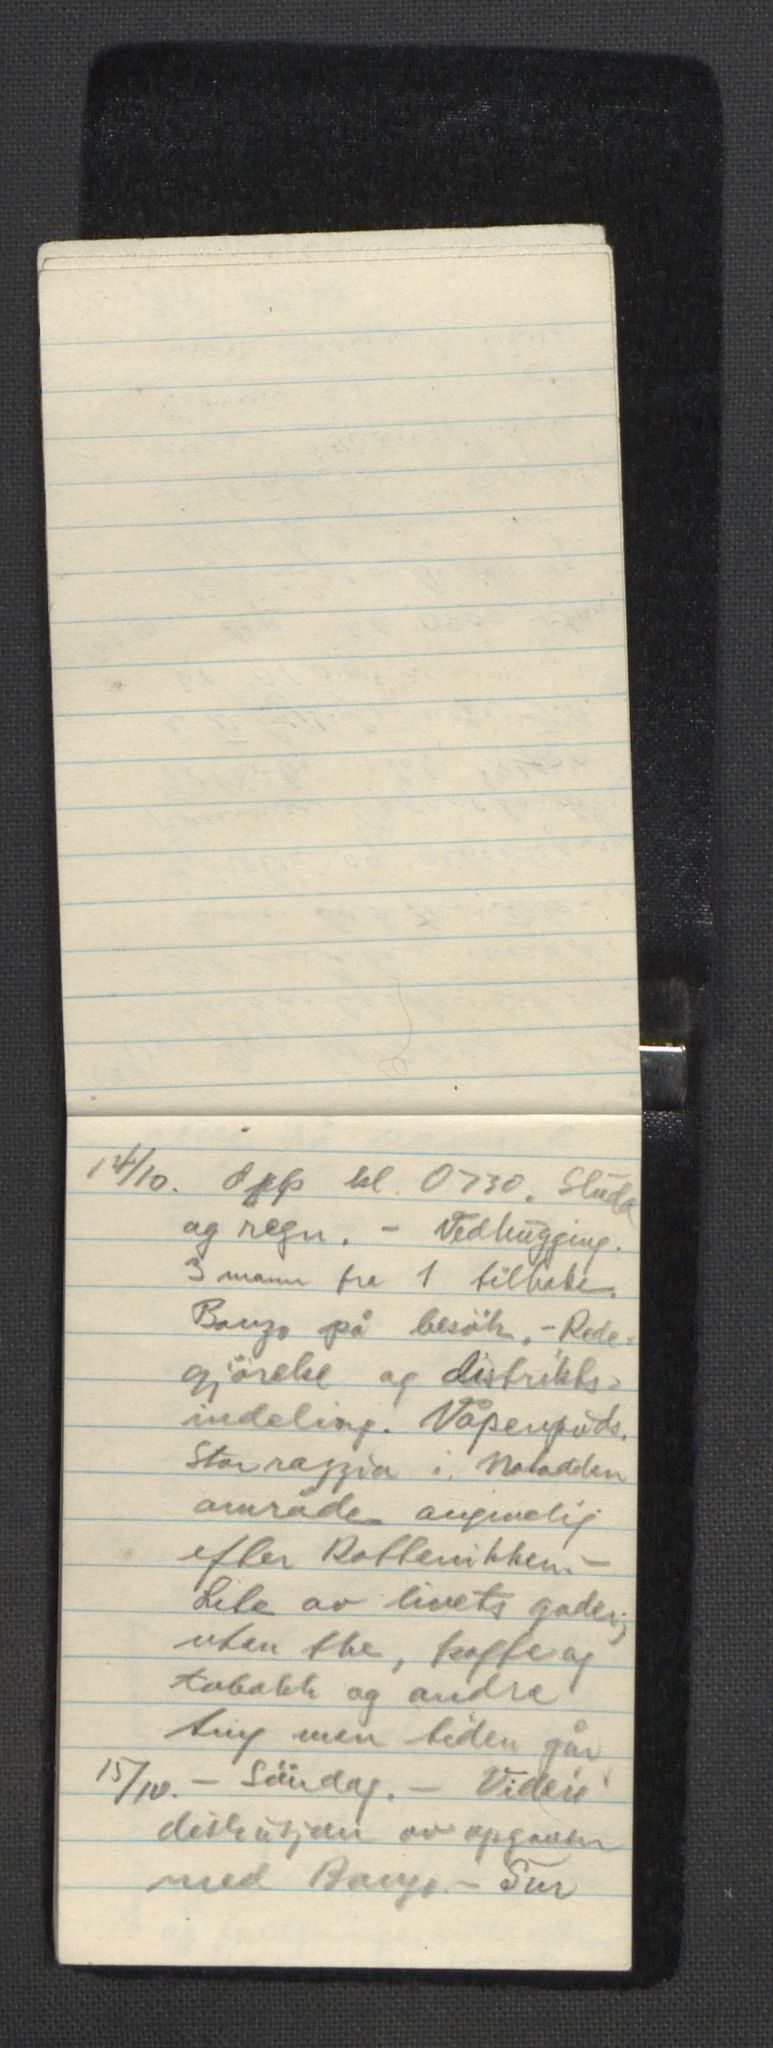 14/10. Opp kl. 0730. Sludd
og regn. - Vedhugging.
3 mann fra 1 tilbake.
Banzo på besök. - Rede-
gjörelse og distrikts-
indeling. Våpenpuds.
Storrazzia i Notodden
område angivelig
efter Rottenikken. -
Lite av livets goder,
uten the, kaffe og
tobakk og andre
ting men tiden går
15/10. - Söndag. - Videre
diskusjon av opgaven
med Banzo. - Tur